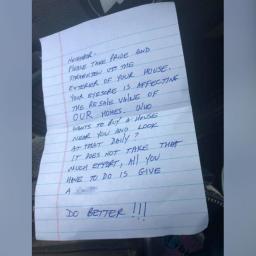 NEIGHBOR.
PLEASE TAKE PRIDE AND
STRAIGHTEN UP THE
EXTERIOR OF YOUR HOUSE.
YOUR EYESORE IS AFFECTING
THE RESALE VALUE OF
OUR HOMES. WHO
WANTS TO BUY A HOUSE
NEAR YOU AND LOOK
AT THAT DAILY?
IT DOES NOT TAKE THAT
MUCH EFFORT, All YOU
HAVE TO DO IS GIVE
A
DO BETTER!!!